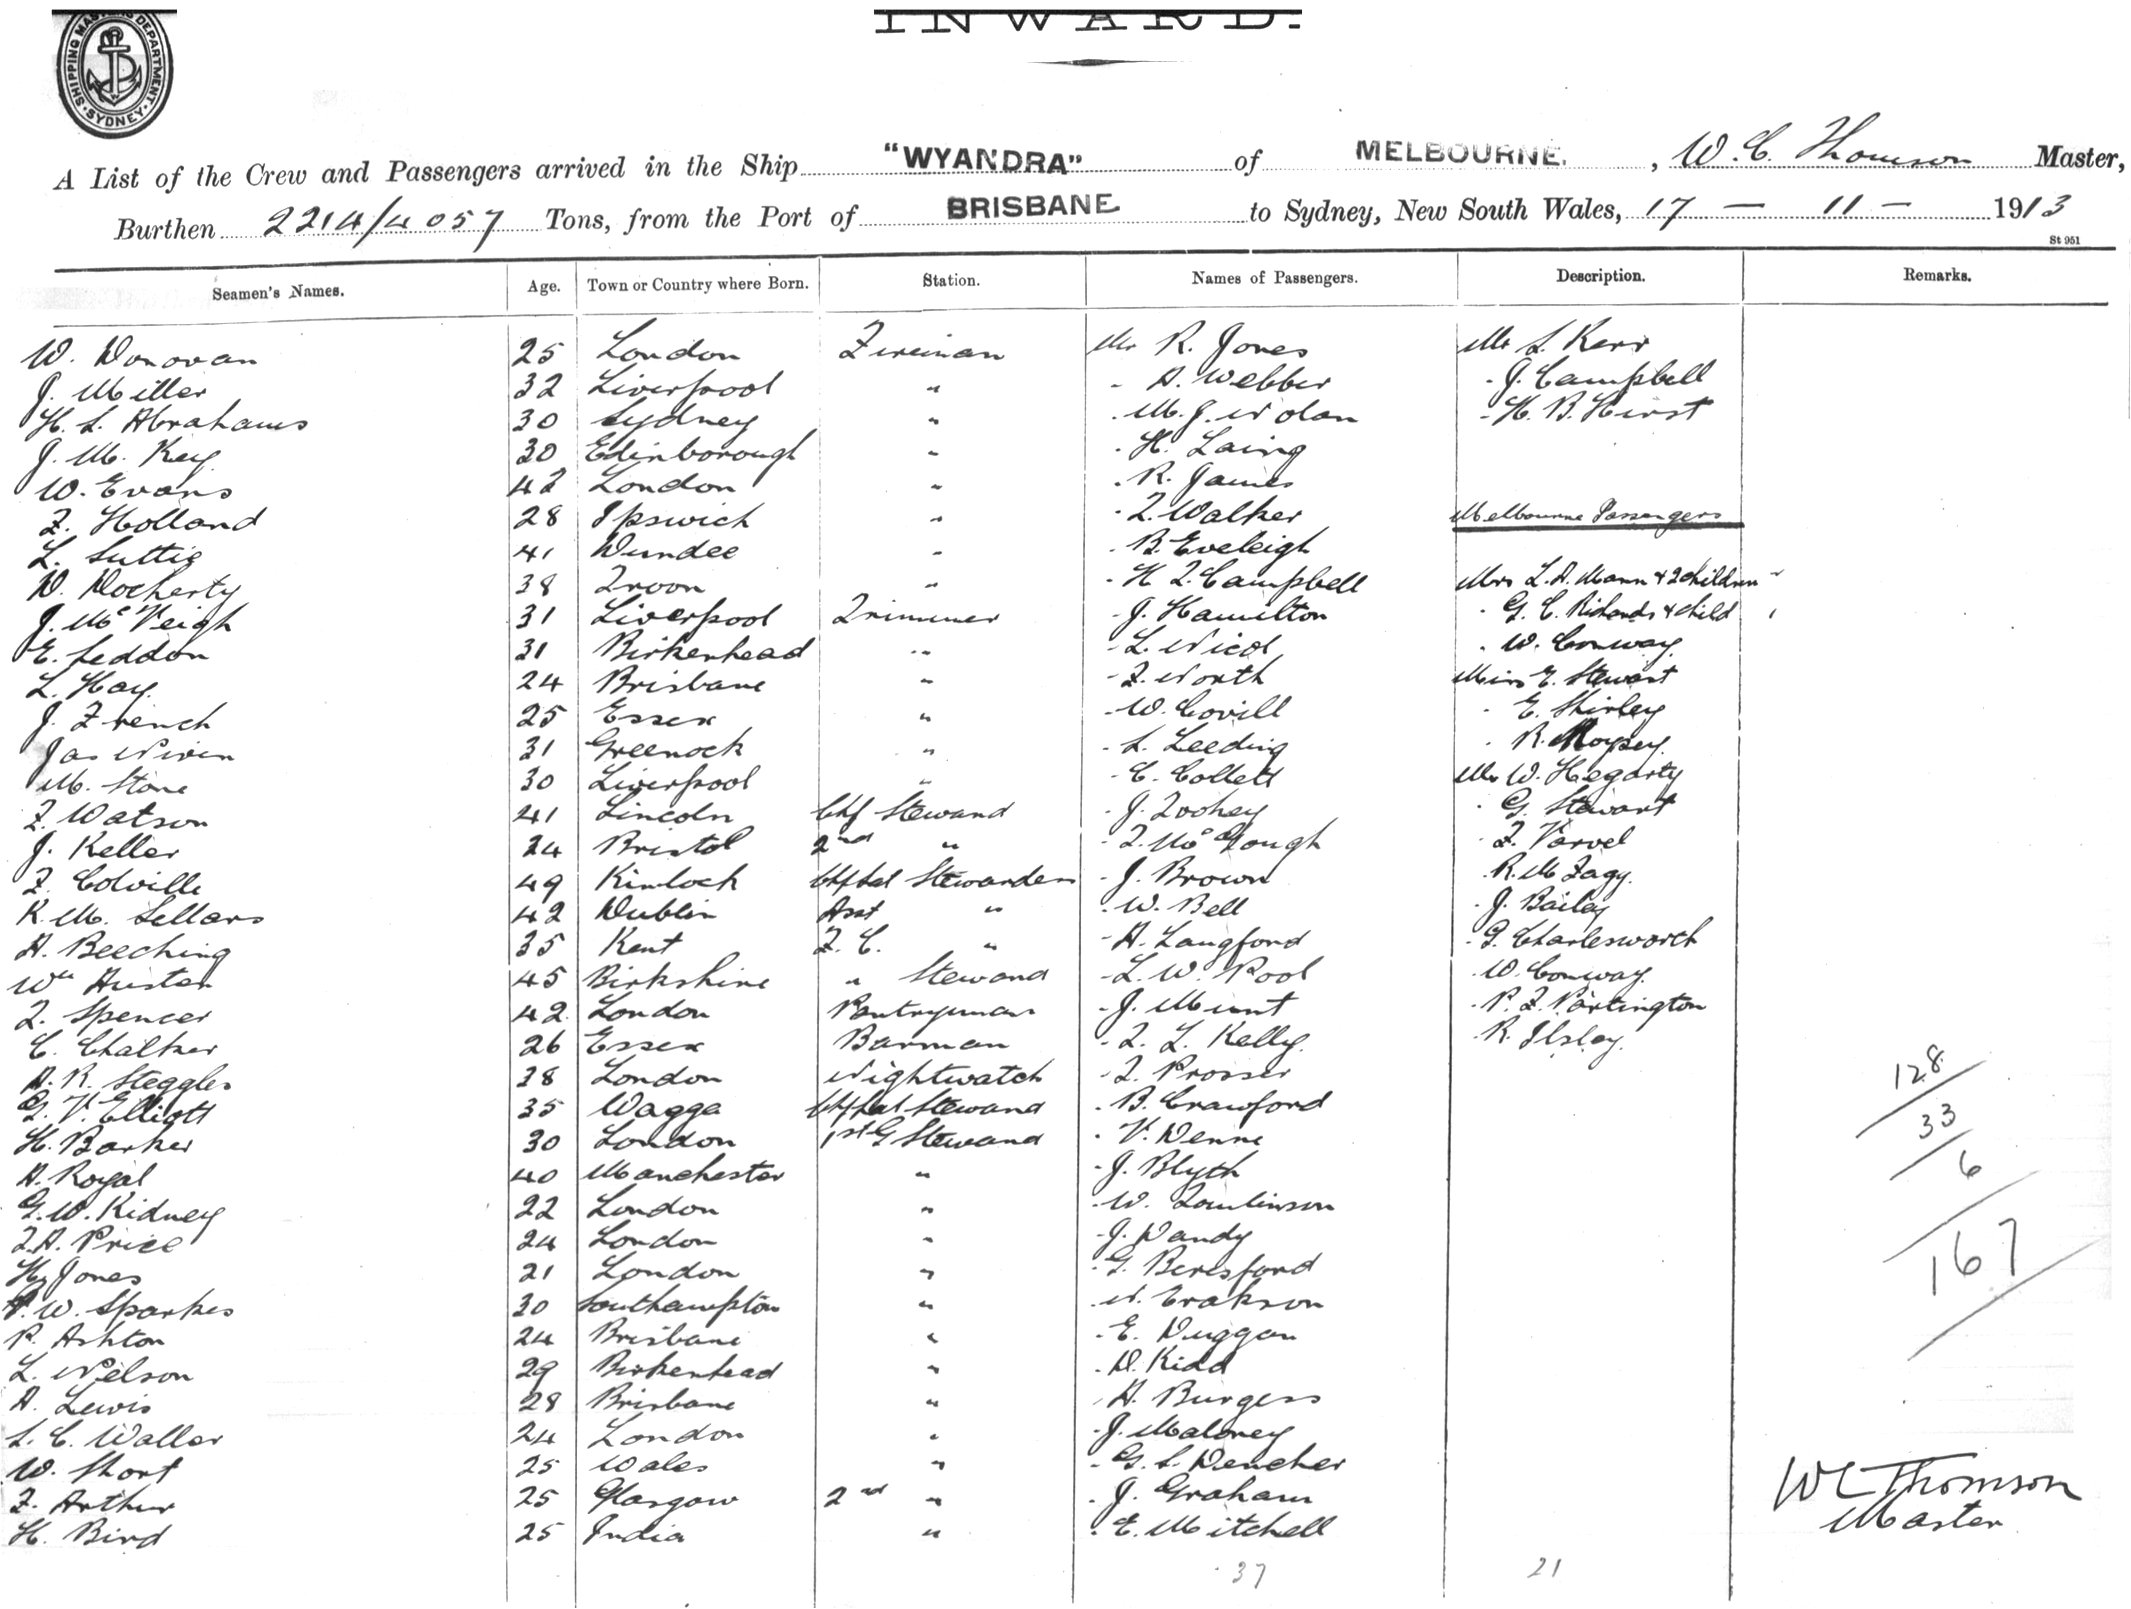 SHIPPING MASTERS DEPARTMENT · SYDNEY ·
INWARD.
A List of the Crew and Passengers arrived in the Ship "WYANDRA" of MELBOURNE, W. C. Thomson Master,
Burthen 2214/4057 Tons, from the Port of BRISBANE to Sydney, New South Wales, 17 - 11 - 1913
St 951
Seamen's Names. Age. Town or Country where Born. Station. Names of Passengers. Description. Remarks.
W. Donovan 25 London Fireman Mr R. Jones Mr L. Kerr
J. Miller 32 Liverpool " - A. Webber - J. Campbell
H. L. Abrahams 30 Sydney " - M. J. Nolan - H. B. Hirst
J. M. Key 30 Edinborough " - H. Laing
W. Evans 42 London " - R. James
F. Holland 28 Ipswich " - T. Walker Melbourne Passengers
L. Suttie 41 Dundee " - B. Eveleigh
D. Docherty 38 Troon " - H T. Campbell Mrs L. A. Mann & 2 children
J. McVeigh 31 Liverpool Trimmer - J. Hamilton - G. C. Richards & child
E. Seddon 31 Birkenhead " - L. Nicol - W. Conway
L. Hay 24 Brisbane " - F. North Miss E. Stewart
J. French 25 Essex " - W. Covill - E. Shirley
Jas Niven 31 Greenock " - L. Leeding - R. Moysey
M. Stone 30 Liverpool " - C. Collett Mr W. Hegarty
F. Watson 41 Lincoln Chf Steward - J. Toohey - G. Stewart
J. Keller 24 Bristol 2nd " - T. McGough - F. Varvel
F. Colville 49 Kinloch Stewardess - J. Brown - R. M Fagg
R. M. Sellars 42 Dublin Asst " - W. Bell - J. Bailey
A. Beeching 35 Kent F. C. " - A. Langford - G. Charlesworth
Wm Huster 45 Birkshire " Steward - L. W. Pool - W. Conway
T. Spencer 42 London Pantryman - J. Munt - P. F. Partington
C. Chalker 26 Essex Barman - T. L. Kelly - R. Ilsley
A. R. Steggles 38 London Nightwatch - T. Prosser 128
G. V. Elliott 35 Wagga Steward - B. Crawford 33
H. Barker 30 London 1st G Steward - V. Denne 6
A. Royal 40 Manchester " - J. Blyth
G. W. Kidney 22 London " - W. Tomlinson
T. A. Price 24 London " - J. Dandy 167
Hy Jones 21 London " - G. Beresford
W. Sparkes 30 Southampton " - N. Erakson
P. Ashton 24 Brisbane " - E. Duggan
L. Nelson 29 Birkenhead " - D. Kidd
A. Lewis 28 Brisbane " - A. Burgess
L. C. Waller 24 London " - J. Maloney
W. Short 25 Wales " - G. S. Dencher WC Thomson
F. Arthur 25 Glasgow 2nd " - J. Graham Master
H. Bird 25 India " - E. Mitchell
37 21